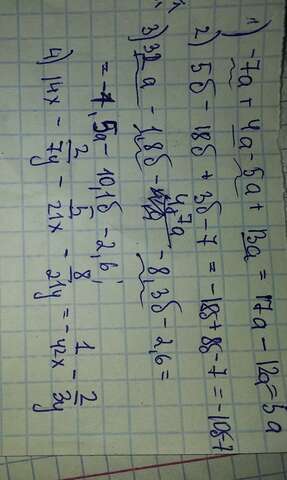 1) -7a + 4a - 5a + 13a = 17a - 12a = 5a
2) 5б - 18б + 3б - 7 = -18б + 8б - 7 = -10б - 7
3) 3,2a - 1,8б - 4,7a - 8,3б - 2,6 =
= -1,5a - 10,1б - 2,6
4) 14x - 2/7y - 21x - 5/21y = -42x 8/ 1 - 2/3y